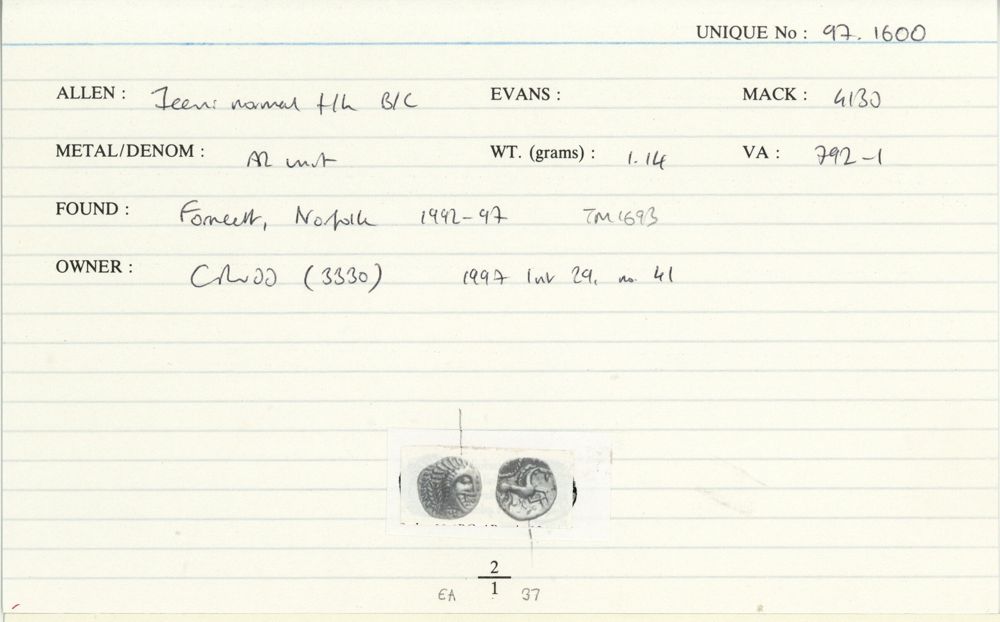 UNIQUE No : 97. 1600
ALLEN : Iceni normal f/h B/C EVANS : MACK : 413D
METAL/DENOM : AR unit WT. (grams) : 1.14 VA : 792-1
FOUND : Forncett, Norfolk 1992-97 TM1693
OWNER : CRudd (3330) 1997 list 29, no. 41
2
1
EA 37